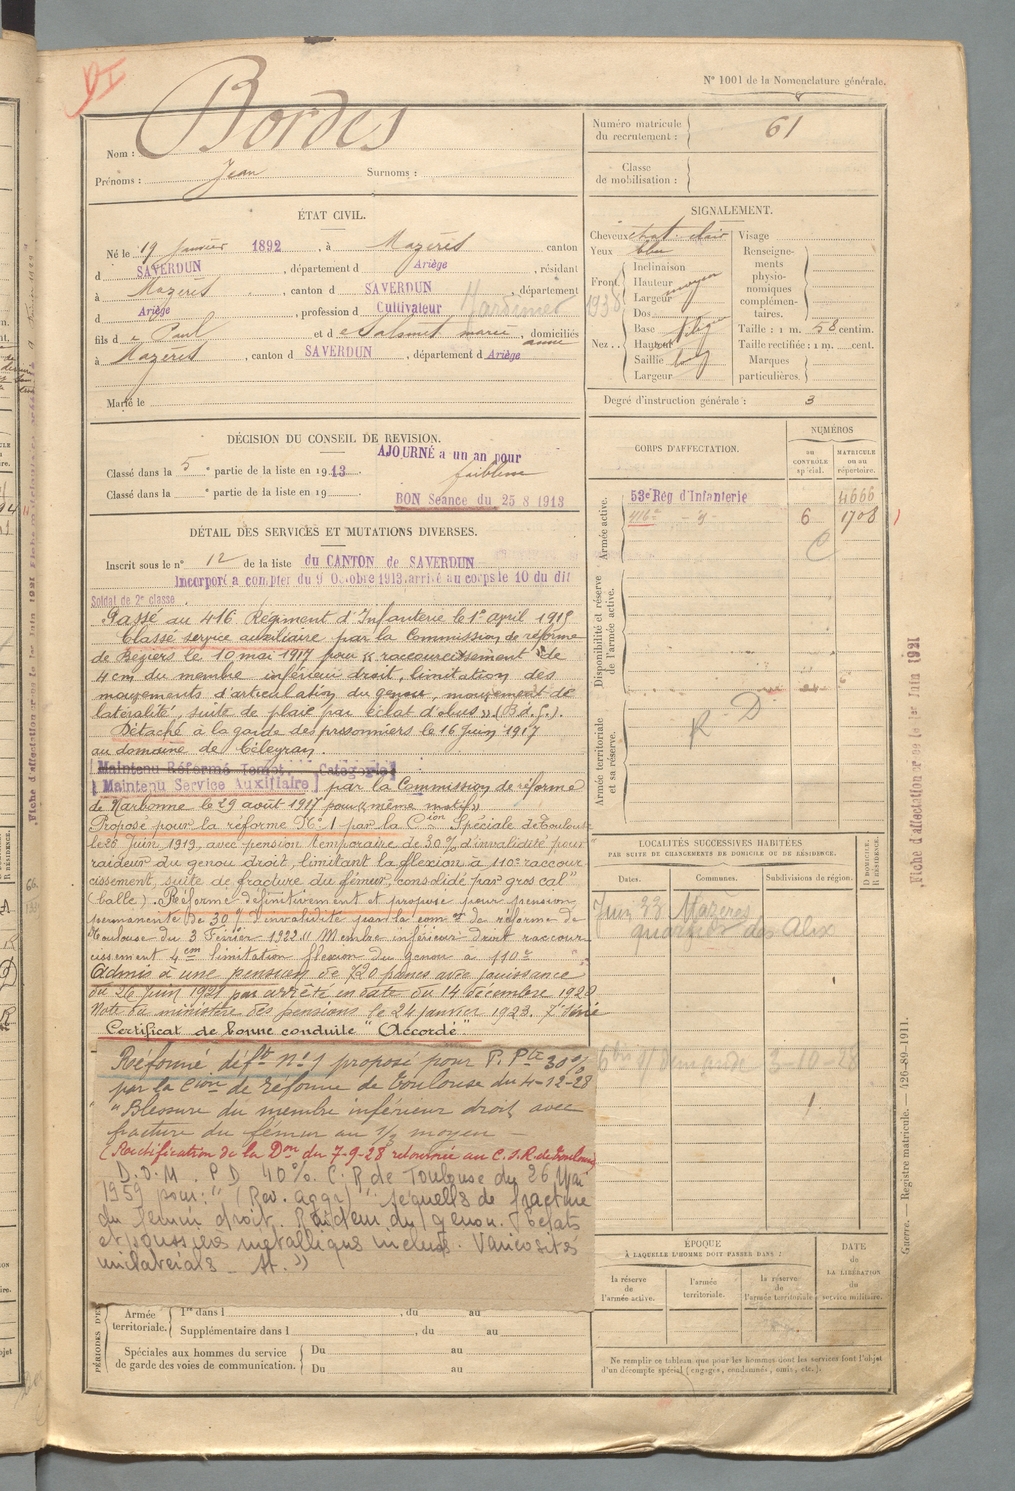 VI
N° 1001 de la Nomenclature générale.
Nom : Bordes
Prénoms : Jean Surnoms :
Numéro matricule du recrutement : 61
Classe de mobilisation :
ÉTAT CIVIL.
Né le 19 Janvier 1892, à Mazères canton
d SAVERDUN, département d Ariège, résidant
à Mazères, canton d SAVERDUN, département
d Ariège, profession d Cultivateur
fils de Paul et de Salomet marie anne, domiciliés
à Mazères, canton d SAVERDUN, département d Ariège
Marié le
SIGNALEMENT.
Cheveux chat. clair
Yeux bleu
Front. Inclinaison
Hauteur moyen
Largeur
Nez. Dos
Base
Hauteur
Saillie long
Largeur
Visage
Renseignements physionomiques complémentaires.
Taille : 1 m. 58 centim.
Taille rectifiée : 1 m. cent.
Marques particulières.
1938
Degré d'instruction générale : 3
DÉCISION DU CONSEIL DE REVISION.
AJOURNÉ a un an pour
faiblesse
Classé dans la 5e partie de la liste en 1913
Classé dans la ° partie de la liste en 19
BON Séance du 25 8 1913
DÉTAIL DES SERVICES ET MUTATIONS DIVERSES.
Inscrit sous le n° 12 de la liste du CANTON de SAVERDUN
Incorporé a compter du 9 Octobre 1913, arrivé au corps le 10 du dit
Soldat de 2e classe.
Passé au 416 Régiment d'Infanterie le 1er april 1915
Classé service auxiliaire par la Commission de réforme
de Béziers le 10 mai 1917 pour « raccourcissement de
4 cm du membre inférieur droit, limitation des
mouvements d'articulation du genou, mouvement de
latéralité, suite de plaie par éclat d'obus » (B.d.G.).
Détaché à la garde des prisonniers le 16 Juin 1917
au domaine de Céleyran.
Maintenu Réformé Tempt. Catégorie
Maintenu Service Auxiliaire par la Commission de réforme
de Narbonne le 29 août 1917 pour « même motif »
Proposé pour la réforme N° 1 par la Cion Spéciale de Toulouse
le 26 Juin 1919, avec pension temporaire de 30 % d'invalidité pour
raideur du genou droit, limitant la flexion à 110° raccour
cissement, suite de fracture du fémur, consolidé par gros cal"
(balle). Réformé définitivement et proposé pour pension
permanente de 30 % d'invalidité par la comon de réforme de
Toulouse du 3 Février 1922 " Membre inférieur droit raccour
cissement 4 cm limitation flexion du genou à 110°
Admis à une pension de 720 francs avec jouissance
du 26 Juin 1921 par arrêté en date du 14 décembre 1922
Note du ministère des pensions le 24 janvier 1923.
Certificat de bonne conduite " Accordé "
Réformé déft N° 1 proposé pour P. Pte 30 %
par la Cion de réforme de Toulouse du 4-12-28
" Blessure du membre inférieur droit avec
fracture du fémur au 1/3 moyen
(Rectification de la Don du 7-9-28 retournée au C.S.R. de Toulouse)
D.D.M. P D 40 %. C.R de Toulouse du 26 Mai
1959 pour : " (Rev. aggr) " sequelles de fracture
du femur droit. Raideur du genou. Eclats
et poussieres metalliques inclus. Varicosités
unilaterals
CORPS D'AFFECTATION.
NUMÉROS
au CONTRÔLE spécial.
MATRICULE ou au répertoire.
Armée active.
53e Rég d'Infanterie 4666
416e - 6 1708
Disponibilité et réserve de l'armée active.
R. D.
Armée territoriale et sa réserve.
Fiche d'affectation créée le 1er Juin 1921
LOCALITÉS SUCCESSIVES HABITÉES
PAR SUITE DE CHANGEMENTS DE DOMICILE OU DE RÉSIDENCE.
Dates. Communes. Subdivisions de région. D DOMICILE. R RÉSIDENCE.
Juin 33 Mazeres
quartier des Alix
3-10-28
ÉPOQUE
À LAQUELLE L'HOMME DOIT PASSER DANS :
la réserve de l'armée active.
l'armée territoriale.
la réserve de l'armée territoriale.
DATE de LA LIBÉRATION du service militaire.
Ne remplir ce tableau que pour les hommes dont les services font l'objet
d'un décompte spécial (engagés, condamnés, omis, etc.).
PÉRIODES D'EX
Armée territoriale. 1re dans l , du au
Supplémentaire dans l , du au
Spéciales aux hommes du service de garde des voies de communication. Du au
Du au
Guerre. — Registre matricule. — 426-89-1911.